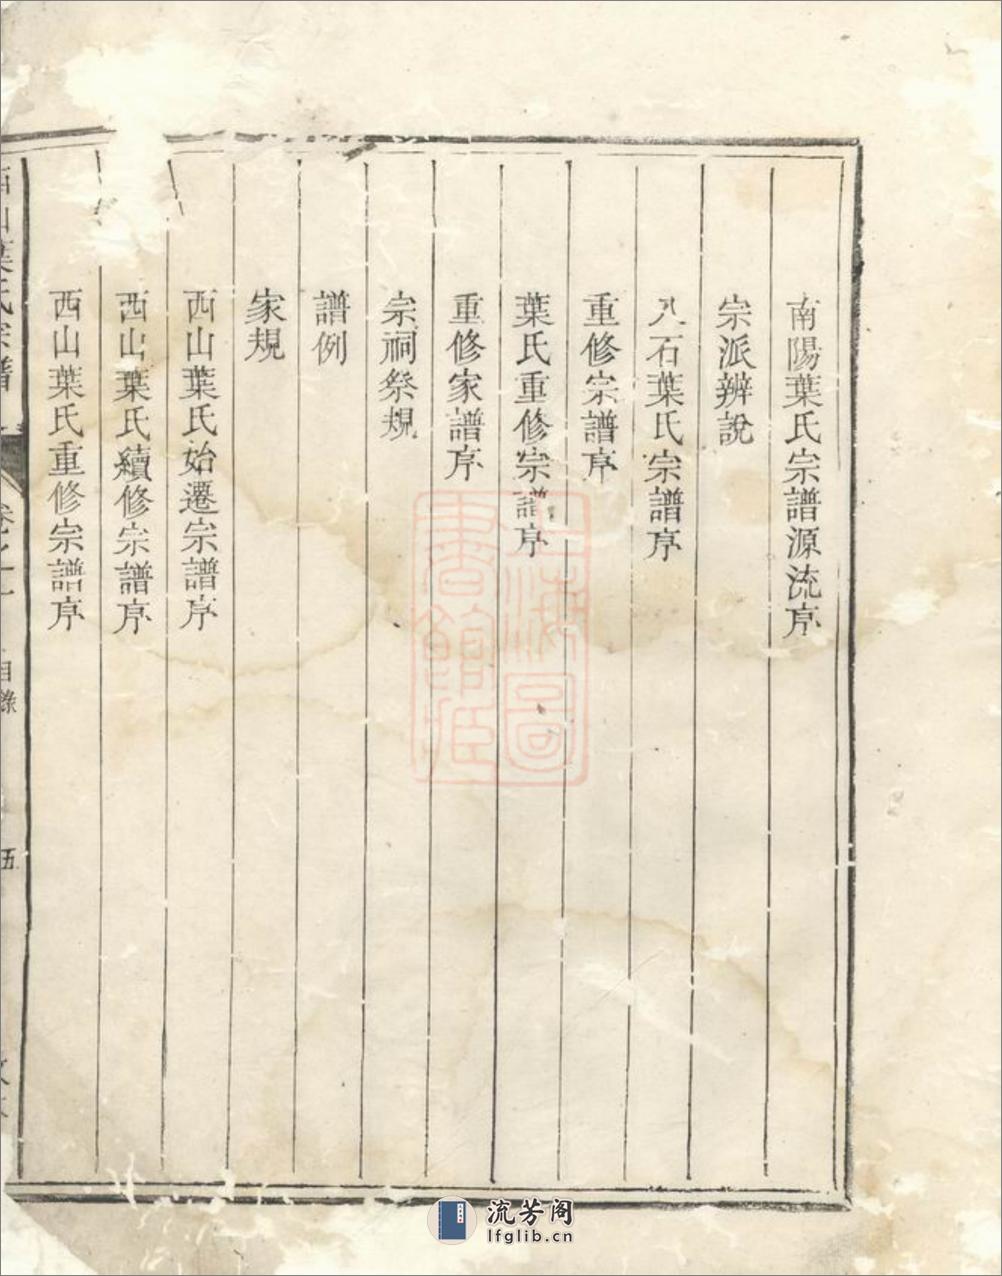 南陽葉氏宗譜源流序
宗派辨說
八石葉氏宗譜序
重修宗譜序
葉氏重修宗譜序
重修家譜序
宗祠祭規
譜例
家規
西山葉氏始遷宗譜序
西山葉氏續修宗譜序
西山葉氏重修宗譜序
西山葉氏宗譜
卷之一
目錄
五
上海圖書館藏
流芳阁
lfglib.cn